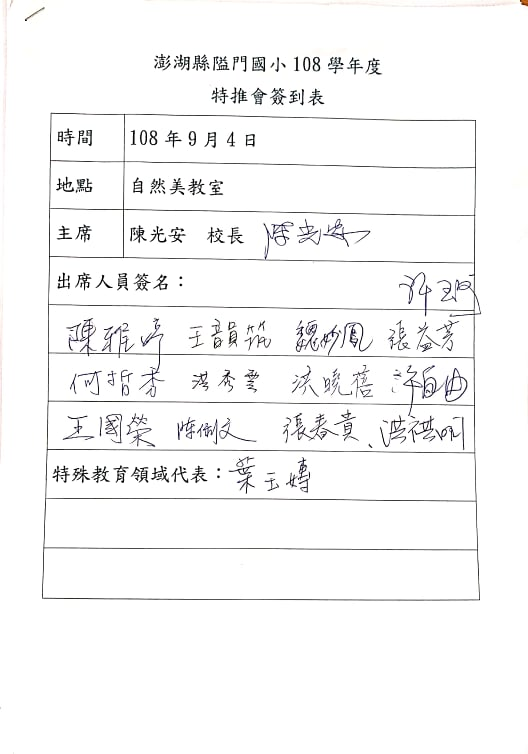 澎湖縣隘門國小 108 學年度
特推會簽到表
時間 108 年 9 月 4 日
地點 自然美教室
主席 陳光安 校長 陳光安
出席人員簽名：
陳雅婷 王韻筑 魏妙鳳 張益芳
何哲秀 洪秀雲 洪曉蓓
王國榮 張春貴、洪祺
特殊教育領域代表：葉玉嫥